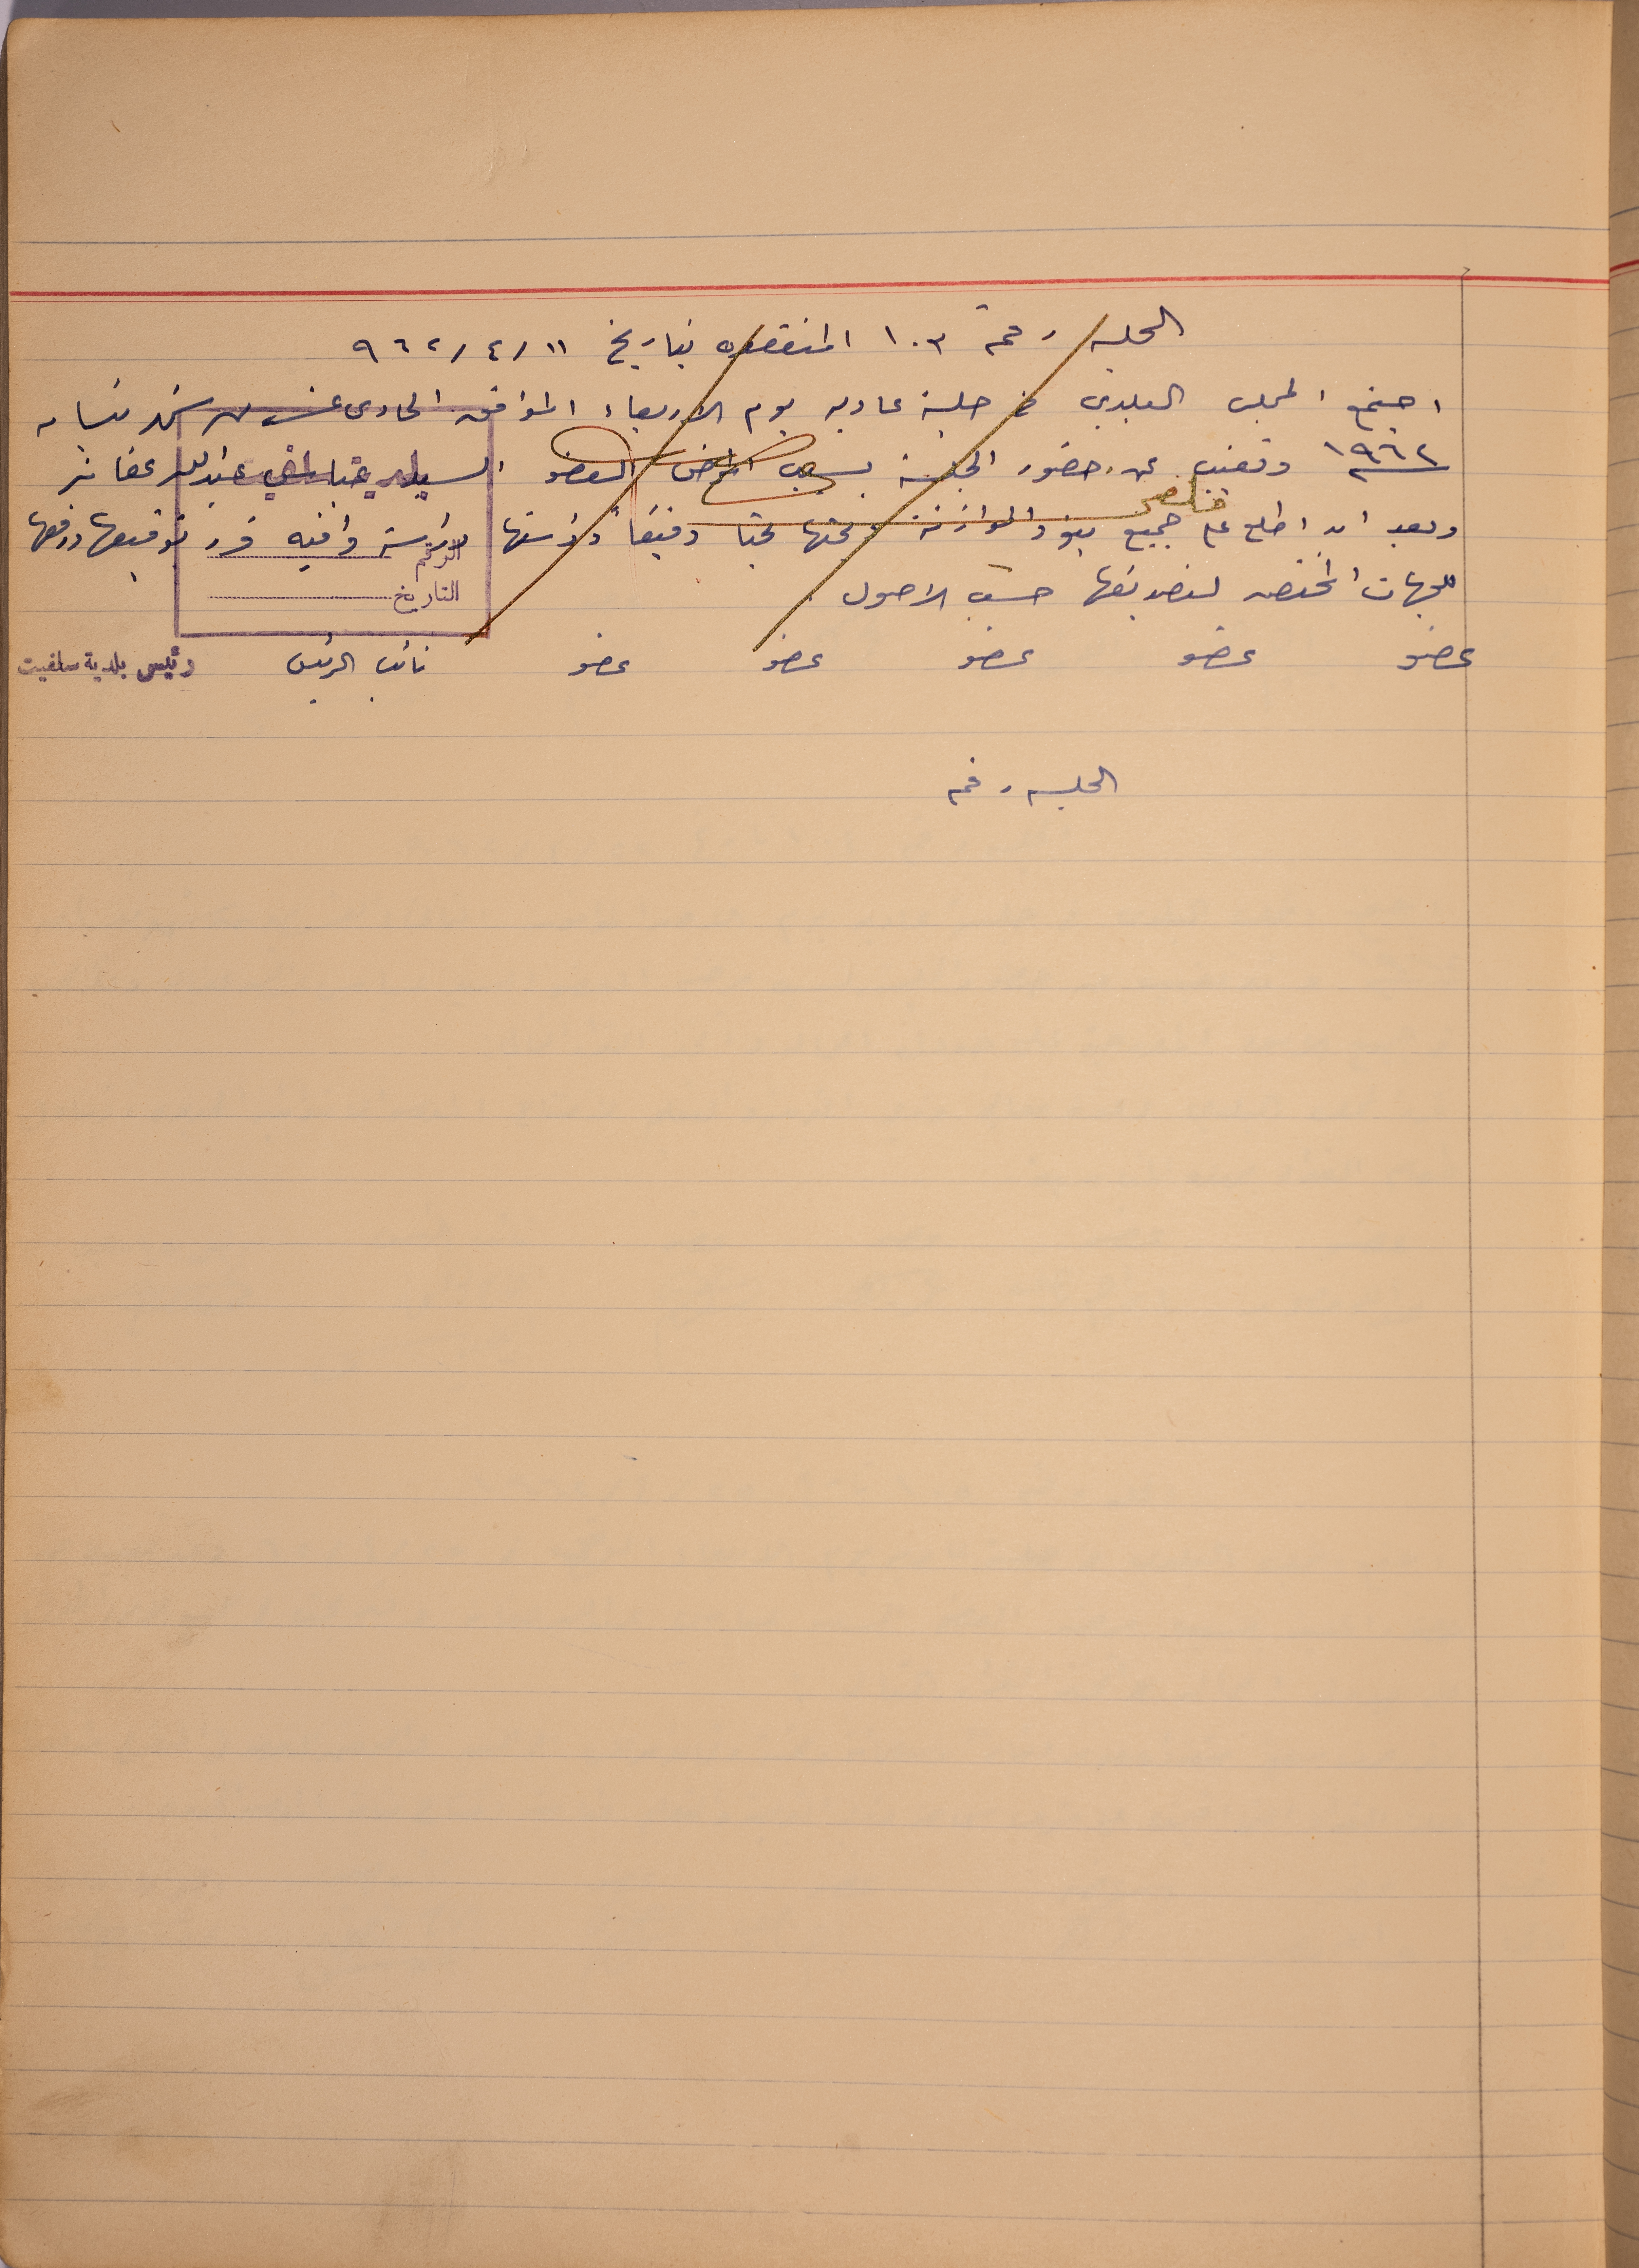 الجلسه رقم ١٠٣ المنعقده بتاريخ ١١/٤/٩٦٢
اجتمع المجلس البلدي في جلسة عاديه يوم الاربعاء الموافق الحادي عشر من شهر نيسان
١٩٦٢ وتغيب عن حضور الجلسة بسبب المرض العضو السيد عبدالله عفانه
وبعد ان اطلع على جميع بنود الموازنة بحثها بحثا دقيقاً ودراستها دراسة وافيه قرر توقيعها ورفعها
للجهات المختصه لتصديقها حسب الاصول
الرقم
التاريخ
عضو عضو عضو عضو عضو نائب الرئيس رئيس بلدية سلفيت
الجلسه رقم